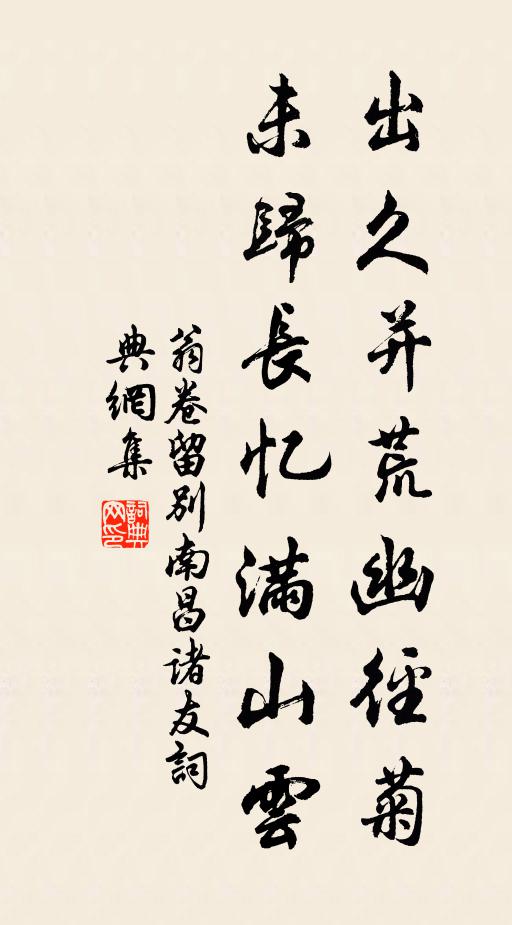 出久并荒幽径菊
未歸長忆滿山雲
翁卷留别南昌诸友詞
典網集
詞典网印